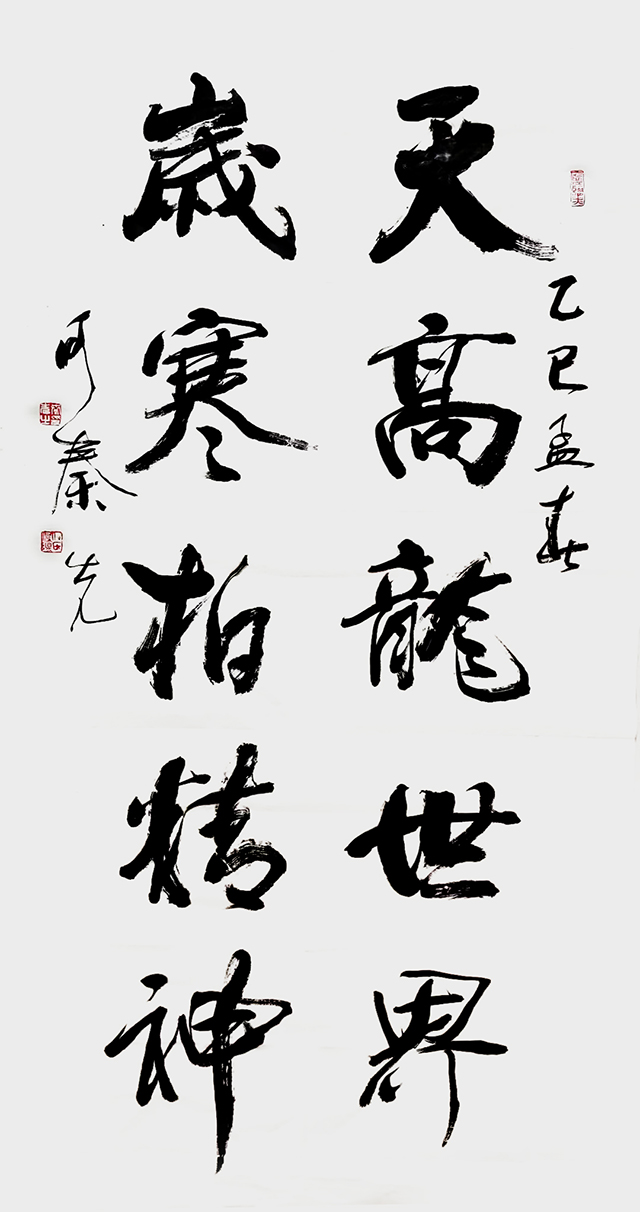 乙巳孟春
天高龍世界
歲寒柏精神
可秦先